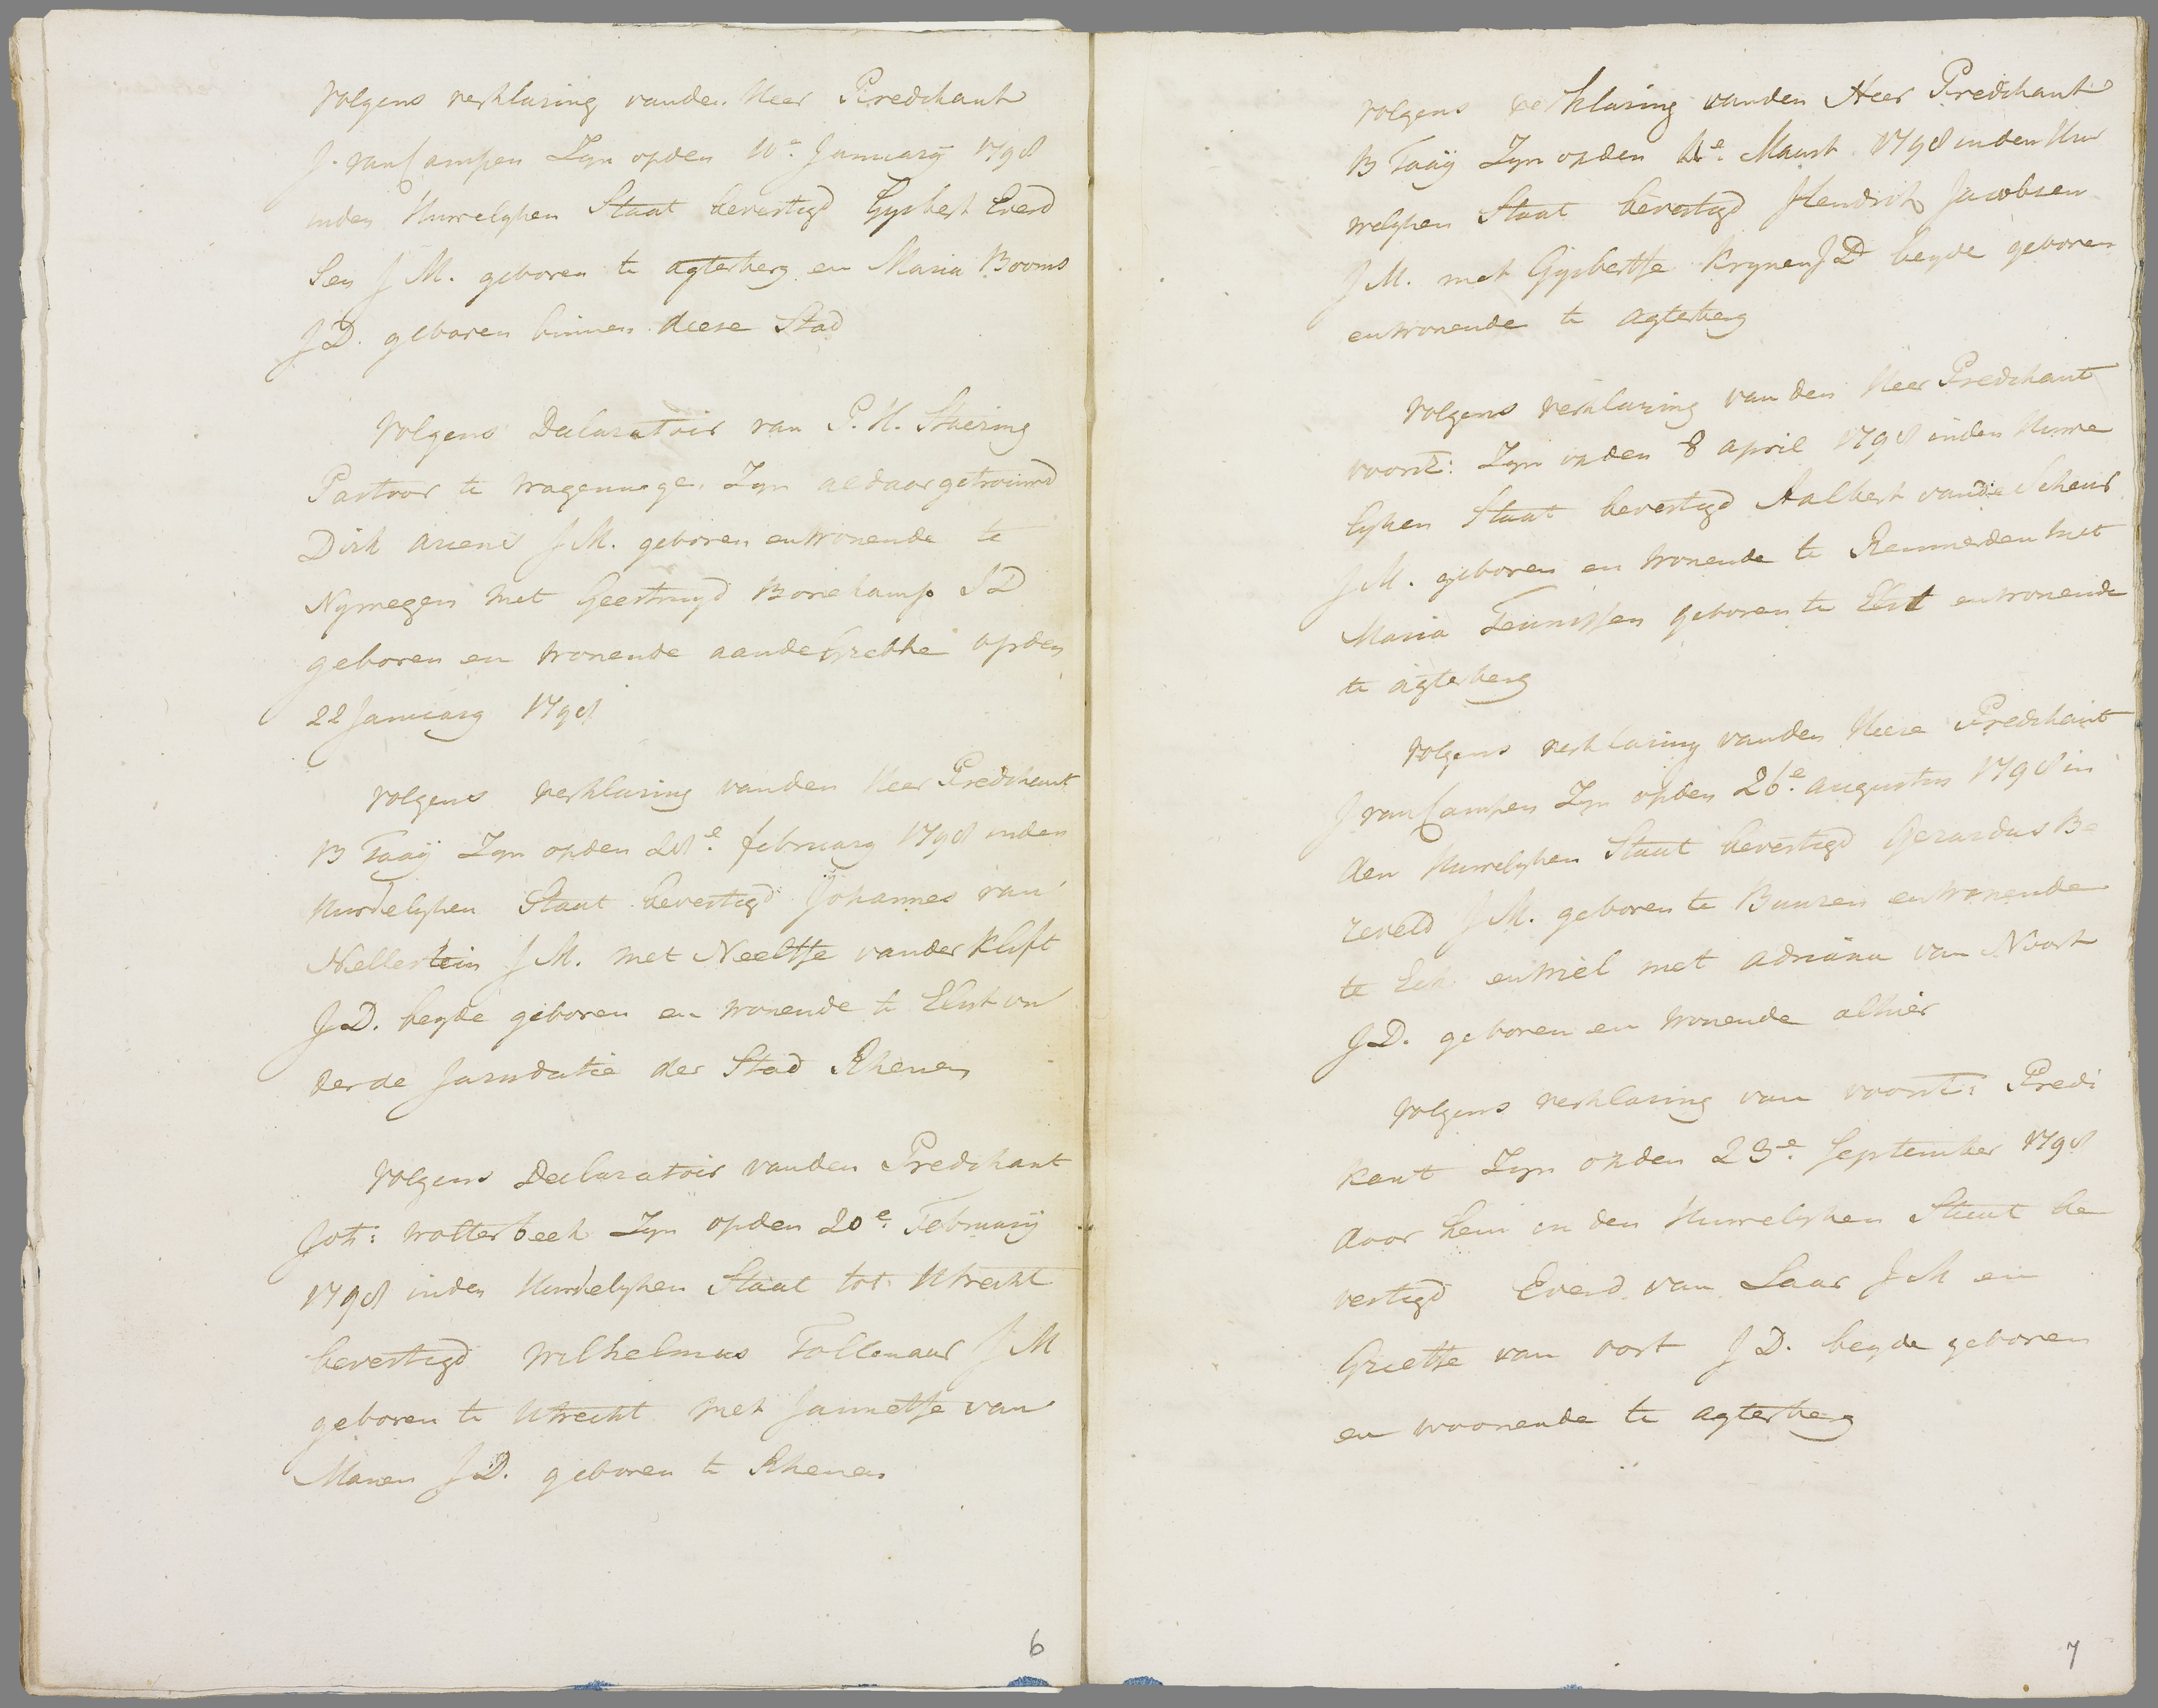 Volgens verklaring vanden Heer Predikant
J. van Campen Zyn opden 10e January 1798
inden Huwelyken Staat bevestigd Gysbert Everd
Sen J M. geboren te agterberg en Maria Booms
J D. geboren binnen deese Stad
Volgens Declaratoir van P. H. Staering
Pastoor te wagennuge. Zyn aldaar getrouwd
Dirk Ariens J M. geboren en wonende te
Nymegen met Geertruyd Bornekamp J D
geboren en wonende aande Grebbe opden
22 January 1798
Volgens verklaring vanden Heer Predikant
B Taaÿ Zyn opden 28e february 1798 inden
Huwelyken Staat bevestigd Johannes van
Nellestein J M. met Neeltje vander Klift
J D. beyde geboren en wonende te Elst on
der de Jurisdictie der Stad Rhenen
Volgens Declaratoir vanden Predikant
Joh: wolterbeek Zyn opden 20e February
1798 inden Huwelyken Staat tot Utrecht
bevestigd Wilhelmus Tollenaar J M
geboren te Utrecht met Jannetje van
Manen J D. geboren te Rhenen
6
Volgens verklaring vanden Heer Predikant
B Taaÿ Zyn opden 4e Maart 1798 inden Huw
welyken Staat bevestigd Hendrik Jacobsen
J M. met Gysbertje Krynen J D beyde geboren
en wonende te agterberg
Volgens verklaring van den Heer Predikant
voorst: Zyn opden 8 april 1798 inden Huwe
lyken Staat bevestigd Aalbert vande Scheur
J M. geboren en wonende te Remmerden met
Maria Teunissen geboren te Elst en wonende
te agterberg
Volgens verklaring vanden Heere Predikant
J van Campen Zyn opden 26e augustus 1798 in
den Huwelyken Staat bevestigd Gerardus Be
zeveld J M. geboren te Buuren en wonende
te Eck en wiel met adriana van Noort
J D. geboren en wonende alhier
Volgens verklaring van voorst: Predi
kant Zyn opden 23e September 1798
door hem in den Huwelyken Staat be
vestigd Everd van Laar J M en
Grietje van oort J D. beyde geboren
en woonende te agterberg
7